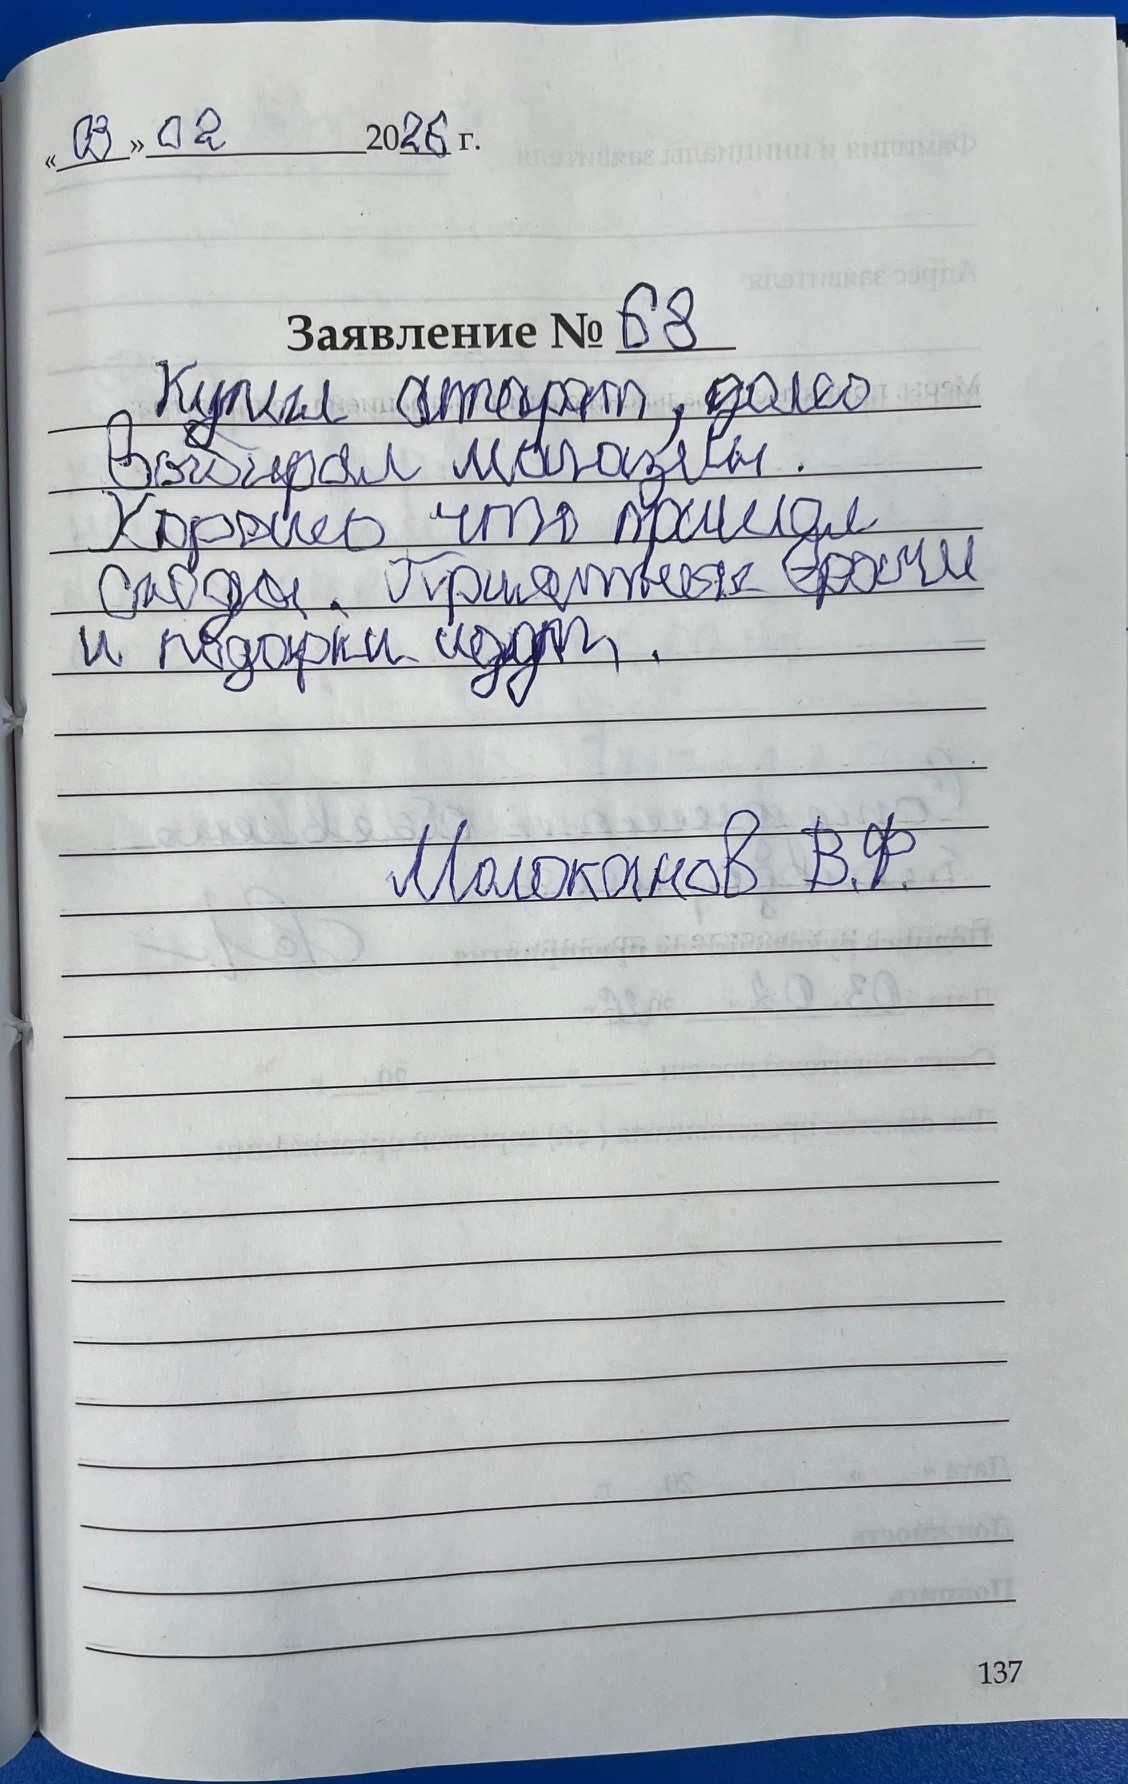 «03» 02 2026 г.
Заявление № 68
Купил аппарат, долго
Выбирал магазины.
Хорошо что пришел
сюда. Приятные врачи
и подарки идут.
Молоканов В.Ф.
137